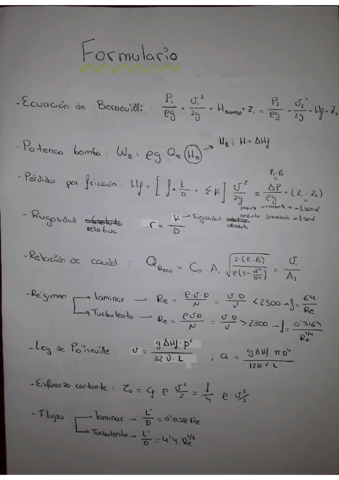 Formulario
- Ecuación de Bernouilli : P₁/ρg + v₁²/2g + H + Z₁ = P₂/ρg + v₂²/2g - Hf - Z₂
- Potencia bomba : W_B = ρg Q_B (H_B) → H_B : H + ΔHf
P₁-P₂
- Pérdidas por fricción : Hf = [f · L/D + ΣK] · v²/2g = ΔP/ρg + (Z₁ - Z₂)
- Rugosidad relativa : r = K/D → rugosidad
- Relación de caudal : Q_Real = C_D A₁ √(2(P₁-P₂)/ρ(1-)) = v/A₁
- Régimen laminar → Re = ρ v D/N = v D/ν < 2300 → f = 64/Re
Turbulento → Re = ρ v D/N = v D/ν > 2300 → f = 0'3164/Re^1/4
- Ley de Poiseuille : v = gΔHf D²/32 ν L ; Q = gΔHf π D⁴/128 ν L
- Esfuerzo cortante : τ₀ = Cf ρ v²/2 = f/4 ρ v²/2
- Flujos laminar → L'/D = 0'058 Re
Turbulento → L'/D = 4'4 Re^1/6